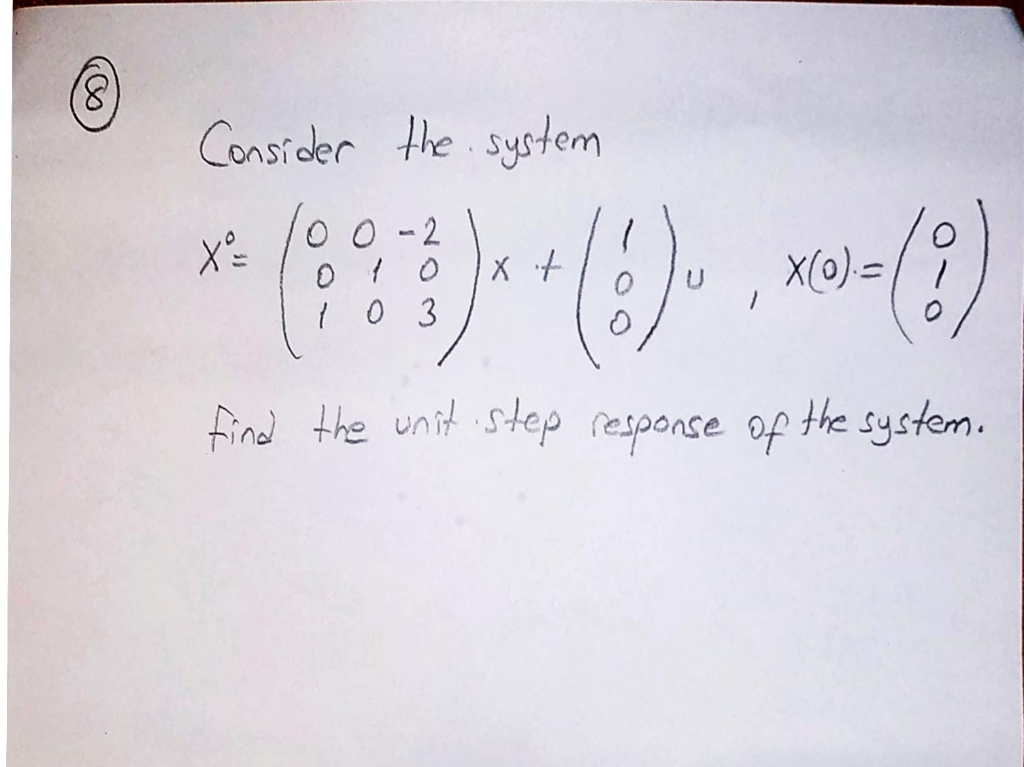 8
Consider the system
x° = ( 0 0 -2 ) x + ( 1 ) u , x(0) = ( 0 )
0 1 0 0 1
1 0 3 0 0
find the unit step response of the system.